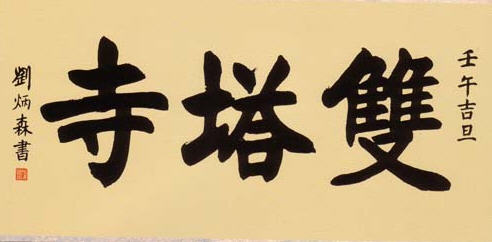 壬午吉旦
雙塔寺
劉炳森書